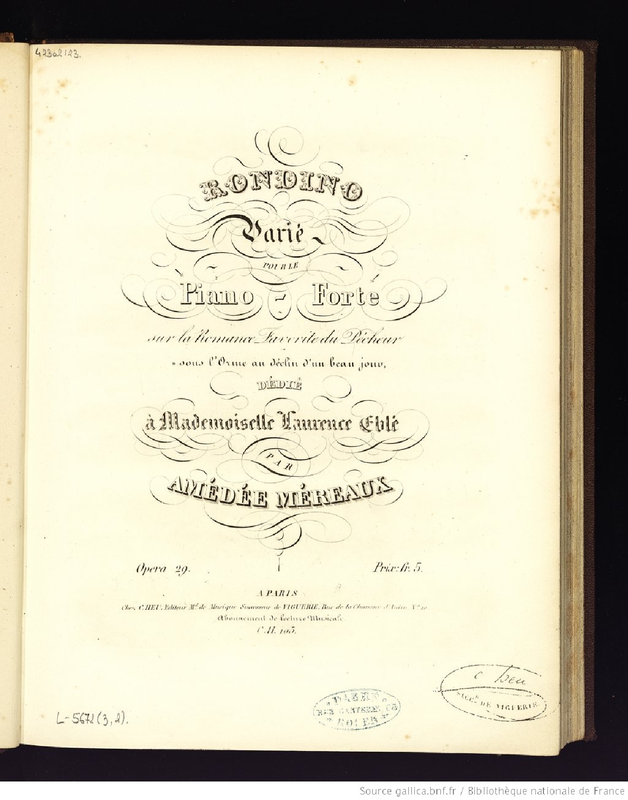 42302/23.
RONDINO
Varié
POUR LE
Piano - Forté
sur la Romance Favorite du Pêcheur
sous l'Orme au déclin d'un beau jour,
DÉDIÉ
à Mademoiselle Laurence Eblé
PAR
AMÉDÉE MÉREAUX
Opera 29.
Prix: fr. 5.
A PARIS
Chez C. HEU, Editeur Md. de Musique Successeur de VIGUERIE, Rue de la Chaussée d'Antin, No. 10
Abonnement de Lecture Musicale
C.H. 195.
C heu
SUCCr. DE VIGUERIE
L-5672(3,2).
ROUEN
Source gallica.bnf.fr / Bibliothèque nationale de France